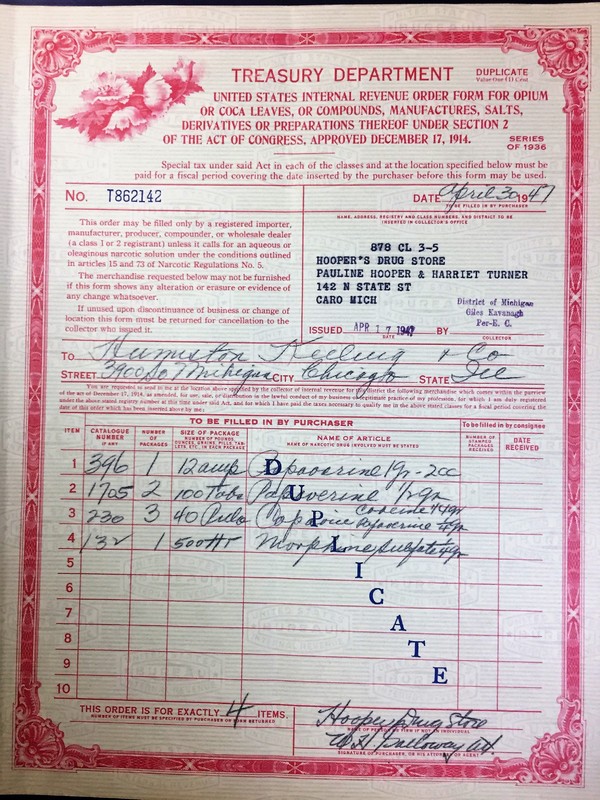 TREASURY DEPARTMENT
DUPLICATE
UNITED STATES INTERNAL REVENUE ORDER FORM FOR OPIUM
OR COCA LEAVES, OR COMPOUNDS, MANUFACTURES, SALTS,
DERIVATIVES OR PREPARATIONS THEREOF UNDER SECTION 2
OF THE ACT OF CONGRESS, APPROVED DECEMBER 17, 1914.
SERIES
OF 1936
Special tax under said Act in each of the classes and at the location specified below must be
paid for a fiscal period covering the date inserted by the purchaser before this form may be used.
No. T862142
DATE April 30 1947
TO BE FILLED IN BY PURCHASER
This order may be filled only by a registered importer,
manufacturer, producer, compounder, or wholesale dealer
(a class 1 or 2 registrant) unless it calls for an aqueous or
oleaginous narcotic solution under the conditions outlined
in articles 15 and 73 of Narcotic Regulations No. 5.
The merchandise requested below may not be furnished
if this form shows any alteration or erasure or evidence of
any change whatsoever.
If unused upon discontinuance of business or change of
location this form must be returned for cancellation to the
collector who issued it.
NAME, ADDRESS, REGISTRY AND CLASS NUMBERS, AND DISTRICT TO BE
INSERTED IN COLLECTOR'S OFFICE
878 CL 3-5
HOOPER'S DRUG STORE
PAULINE HOOPER & HARRIET TURNER
142 N STATE ST
CARO MICH
District of Michigan
Giles Kavanagh
Per-E. C.
ISSUED APR 17 1947 BY
DATE
COLLECTOR
TO Humiston Keeling & Co
STREET 3900 So Michigan CITY Chicago STATE Ill
You are requested to send to me at the location above specified by the collector of internal revenue for this district the following merchandise which comes within the purview
of the act of December 17, 1914, as amended, for use, sale, or distribution in the lawful conduct of my business or legitimate practice of my profession, for which I am duly registered
under the above-stated registry number at this time under said Act, and for which I have paid the taxes necessary to qualify me in the above stated classes for a fiscal period covering the
date of this order which has been inserted above by me:
TO BE FILLED IN BY PURCHASER
To be filled in by consignee
ITEM
CATALOGUE
NUMBER
IF ANY
NUMBER
OF
PACKAGES
SIZE OF PACKAGE
NUMBER OF POUNDS,
OUNCES, GRAINS, PILLS, TABLETS,
ETC., IN EACH PACKAGE
NAME OF ARTICLE
NAME OF NARCOTIC DRUG INVOLVED MUST BE STATED
NUMBER OF
STAMPED
PACKAGES
DATE
RECEIVED
1 396 1 12 amp Papaverine 1gr-2cc
2 1705 2 100 Tabs Papaverine 1/2gr
3 230 3 40 Codeine 1/4gr
4 132 1 500 HT Morphine Sulfate 1/4gr
5
6
7
8
9
10
DUPLICATE
THIS ORDER IS FOR EXACTLY 4 ITEMS.
NUMBER OF ITEMS MUST BE SPECIFIED BY PURCHASER OR FORM RETURNED
Hooper Drug Store
NAME OF PERSON OR FIRM IF NOT AN INDIVIDUAL
Galloway
SIGNATURE OF PURCHASER, OR HIS ATTORNEY OR AGENT